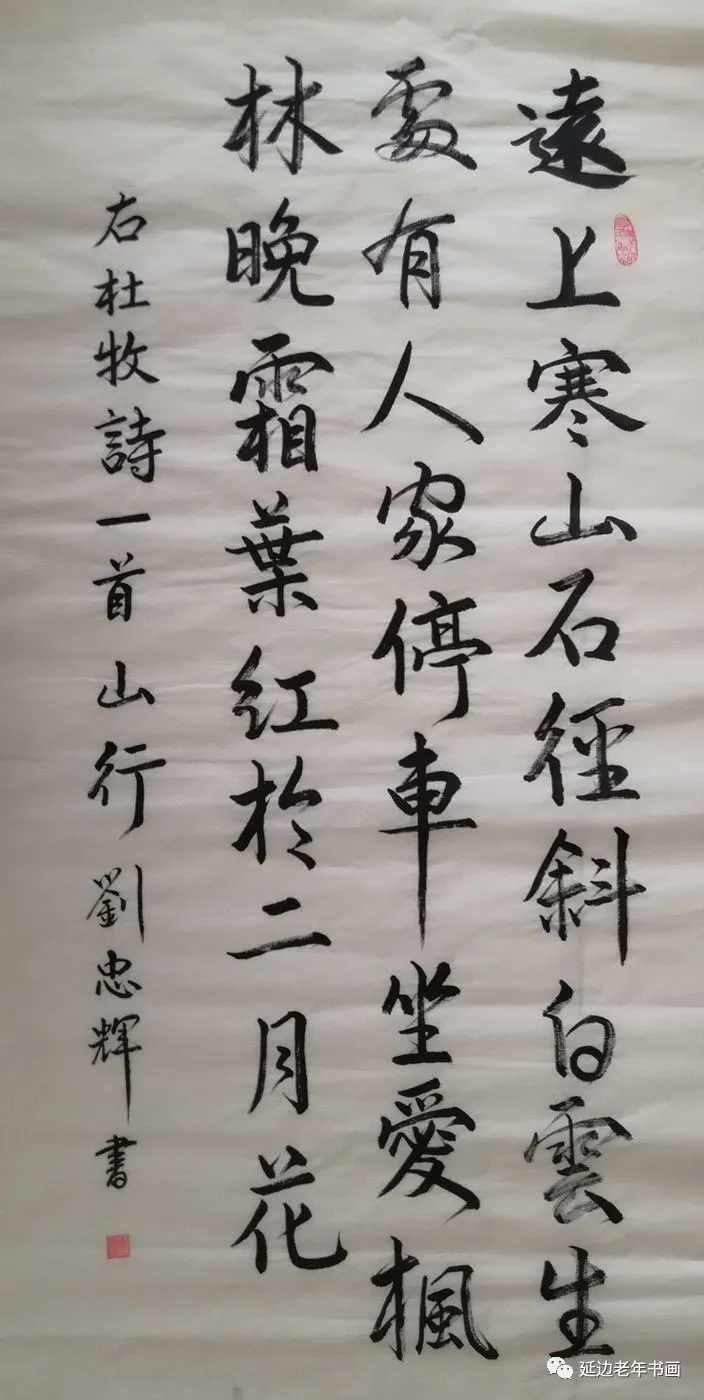 遠上寒山石徑斜白雲生
處有人家停車坐愛楓
林晚霜葉紅於二月花
右杜牧詩一首山行劉忠輝書
延边老年书画